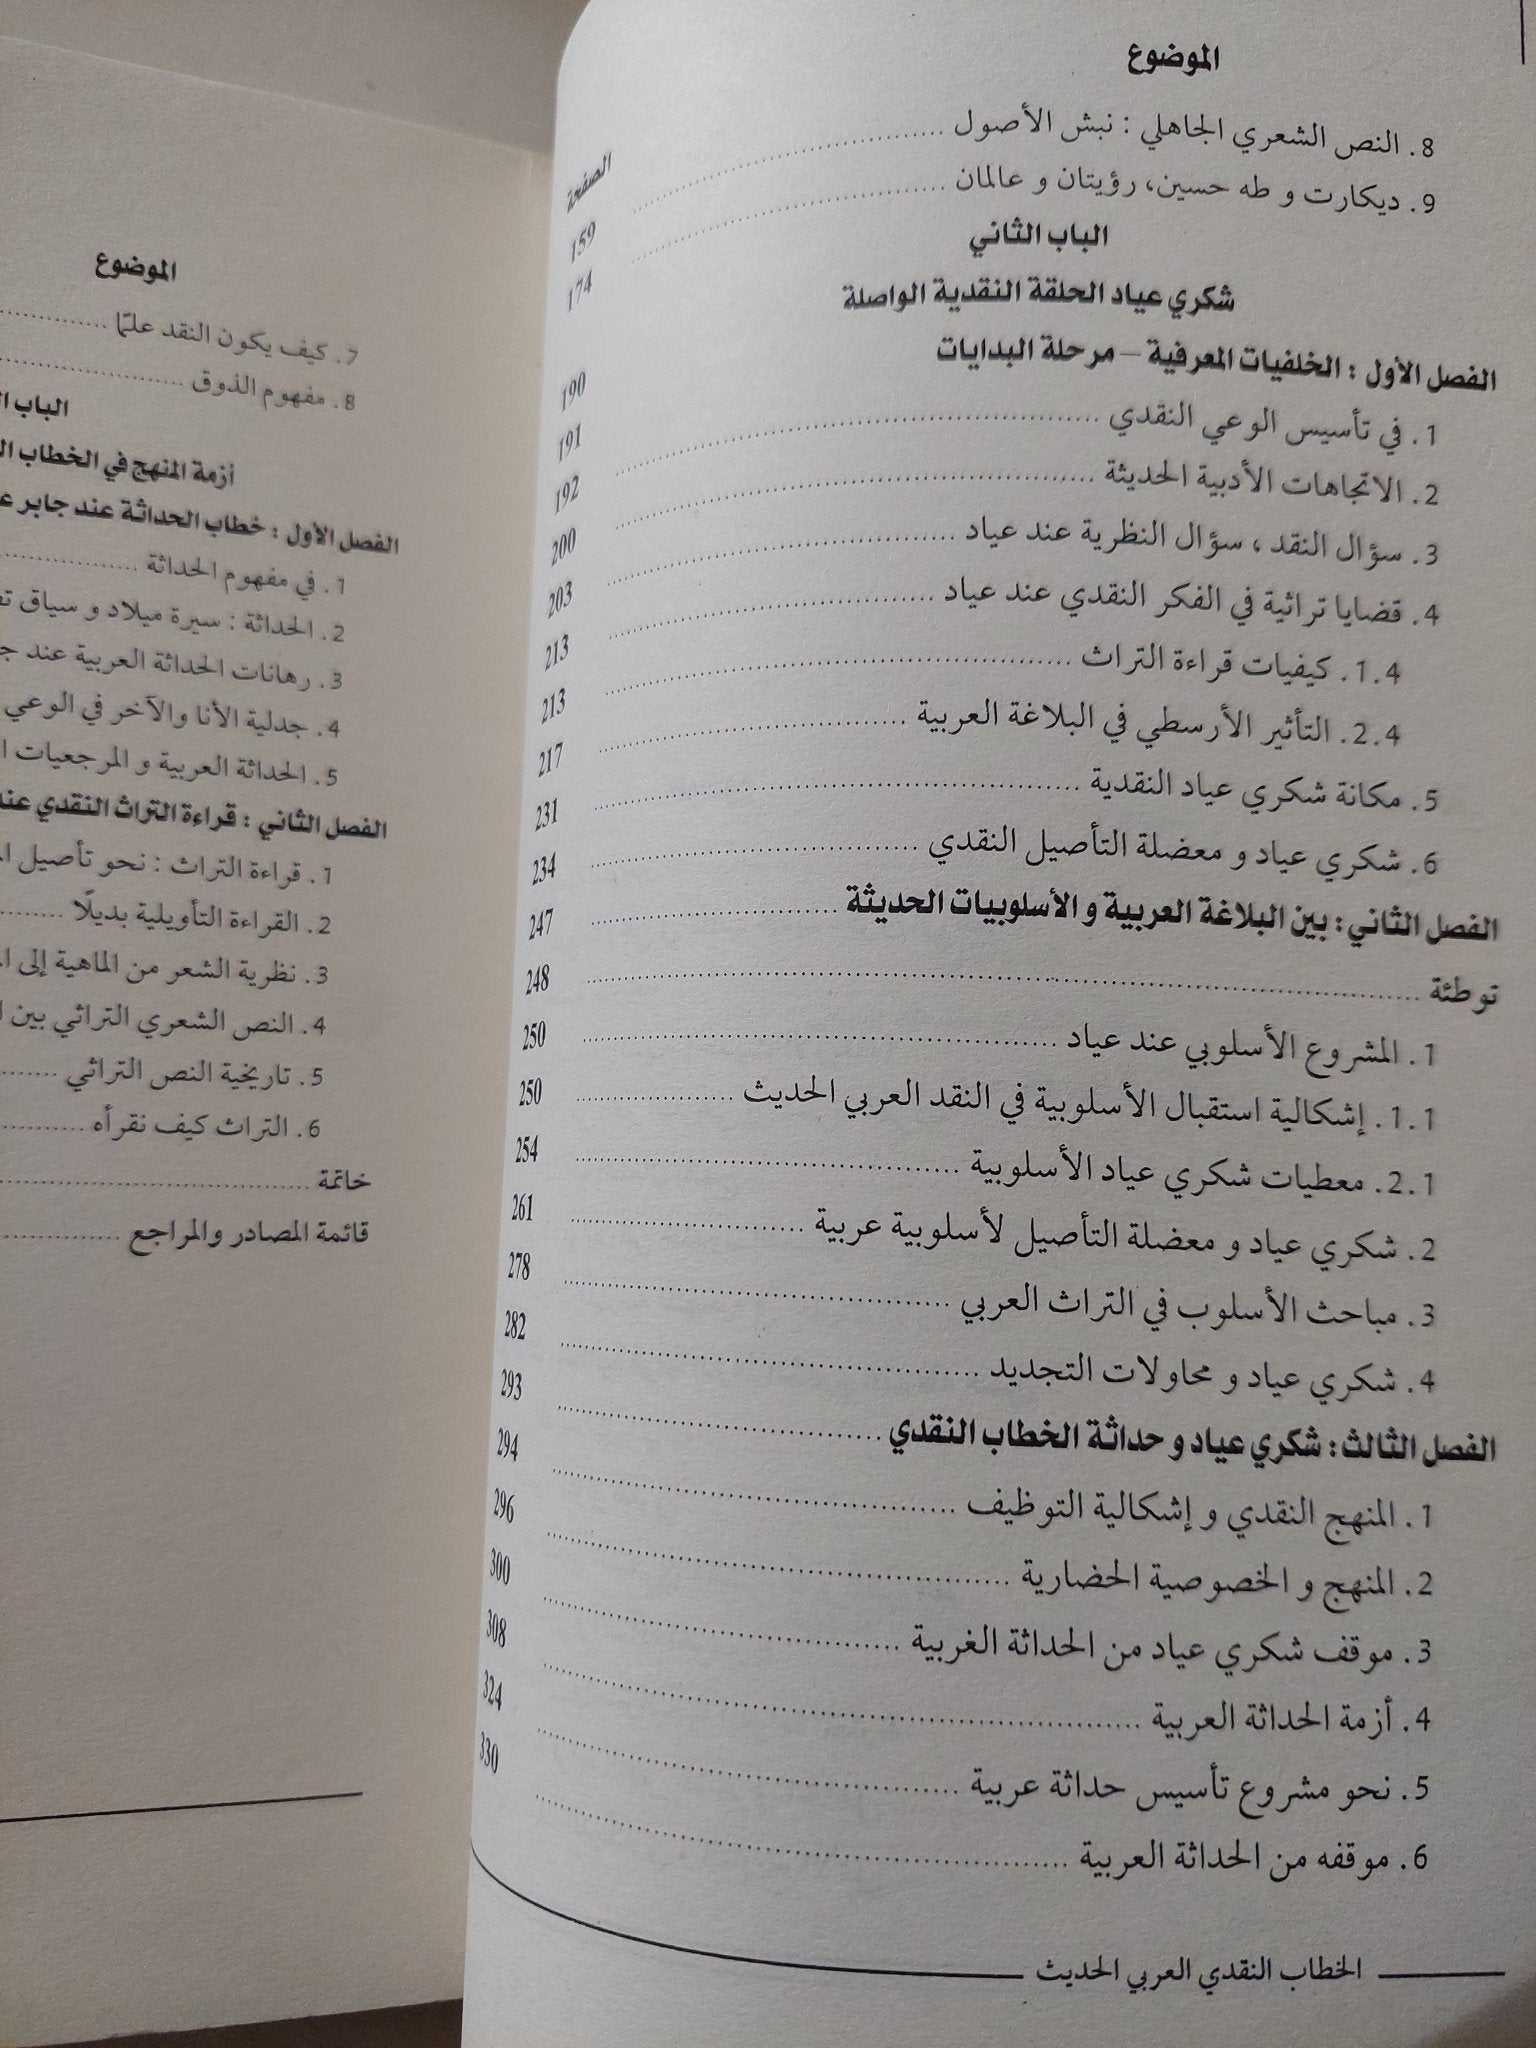 الموضوع
الصفحة
8. النص الشعري الجاهلي : نبش الأصول ........ 159
9. ديكارت و طه حسين، رؤيتان و عالمان ........ 174
الباب الثاني
شكري عياد الحلقة النقدية الواصلة 190
الفصل الأول : الخلفيات المعرفية – مرحلة البدايات 191
1. في تأسيس الوعي النقدي ........ 192
2. الاتجاهات الأدبية الحديثة ........ 200
3. سؤال النقد ، سؤال النظرية عند عياد ........ 203
4. قضايا تراثية في الفكر النقدي عند عياد ........ 213
1.4. كيفيات قراءة التراث ........ 213
2.4. التأثير الأرسطي في البلاغة العربية ........ 217
5. مكانة شكري عياد النقدية ........ 231
6. شكري عياد و معضلة التأصيل النقدي ........ 234
الفصل الثاني: بين البلاغة العربية و الأسلوبيات الحديثة ........ 247
توطئة ........ 248
1. المشروع الأسلوبي عند عياد ........ 250
1.1. إشكالية استقبال الأسلوبية في النقد العربي الحديث ........ 250
2.1. معطيات شكري عياد الأسلوبية ........ 254
2. شكري عياد و معضلة التأصيل لأسلوبية عربية ........ 261
3. مباحث الأسلوب في التراث العربي ........ 278
4. شكري عياد و محاولات التجديد ........ 282
الفصل الثالث: شكري عياد و حداثة الخطاب النقدي ........ 293
1. المنهج النقدي و إشكالية التوظيف ........ 294
2. المنهج و الخصوصية الحضارية ........ 296
3. موقف شكري عياد من الحداثة الغربية ........ 300
4. أزمة الحداثة العربية ........ 308
5. نحو مشروع تأسيس حداثة عربية ........ 324
6. موقفه من الحداثة العربية ........ 330
الخطاب النقدي العربي الحديث
الموضوع
7. كيف يكون النقد علمًا ........
8. مفهوم الذوق ........
الباب
أزمة المنهج في الخطاب
الفصل الأول : خطاب الحداثة عند جابر
1. في مفهوم الحداثة ........
2. الحداثة : سيرة ميلاد و سياق
3. رهانات الحداثة العربية عند
4. جدلية الأنا والآخر في الوعي
5. الحداثة العربية و المرجعيات
الفصل الثاني : قراءة التراث النقدي عند
1. قراءة التراث : نحو تأصيل
2. القراءة التأويلية بديلًا ........
3. نظرية الشعر من الماهية إلى
4. النص الشعري التراثي بين
5. تاريخية النص التراثي ........
6. التراث كيف نقرأه ........
خاتمة ........
قائمة المصادر والمراجع ........